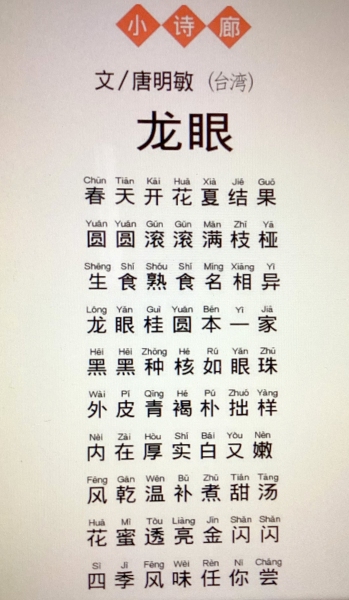 小诗廊
文/唐明敏（台湾）
龙眼
Chūn Tiān Kāi Huā Xià Jiē Guǒ
春天开花夏结果
Yuán Yuán Gǔn Gǔn Mǎn Zhī Yā
圆圆滚滚满枝桠
Shēng Shí Shóu Shí Míng Xiāng Yì
生食熟食名相异
Lóng Yǎn Guì Yuán Běn Yī Jiā
龙眼桂圆本一家
Hēi Hēi Zhǒng Hé Rú Yǎn Zhū
黑黑种核如眼珠
Wài Pí Qīng Hè Pǔ Zhuō Yàng
外皮青褐朴拙样
Nèi Zài Hòu Shí Bái Yòu Nèn
内在厚实白又嫩
Fēng Gān Wēn Bǔ Zhǔ Tián Tāng
风乾温补煮甜汤
Huā Mì Tòu Liàng Jīn Shǎn Shǎn
花蜜透亮金闪闪
Sì Jì Fēng Wèi Rèn Nǐ Cháng
四季风味任你尝